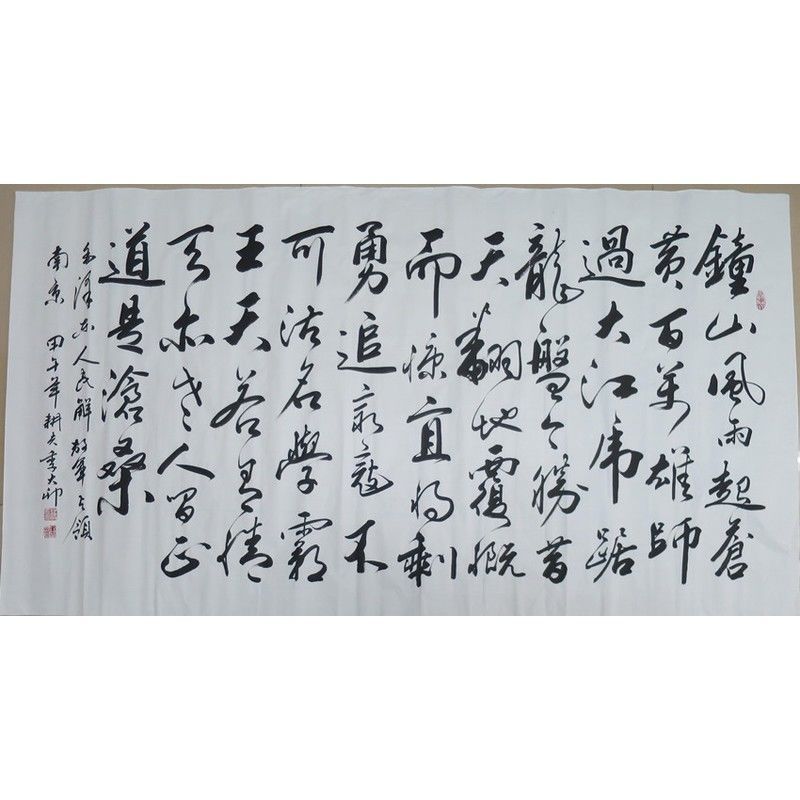 鐘山風雨起蒼
黄百萬雄師
過大江虎踞
龍盤今勝昔
天翻地覆慨
而慷宜將剩
勇追窮寇不
可沽名學霸
王天若有情
天亦老人間正
道是滄桑
毛澤東人民解放軍占領
南京 甲午年耕夫李大帅